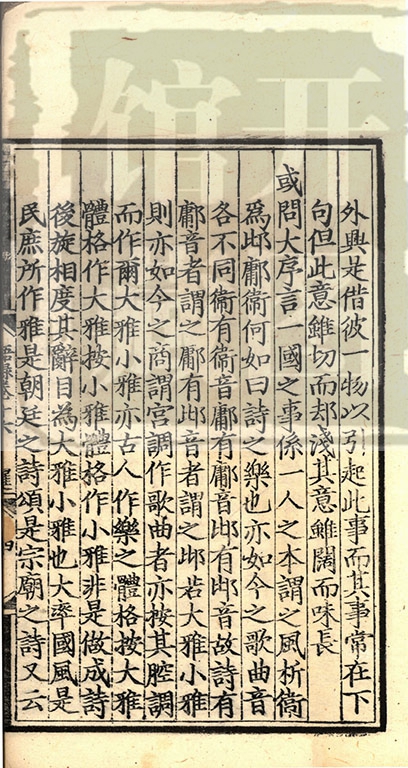 外興是借彼一物以引起此事而其事常在下
句但此意雖切而却淺其意雖闊而味長
或問大序言一國之事係一人之本謂之風析衞
為邶鄘衞何如曰詩之樂也亦如今之歌曲音
各不同衞有衞音鄘有鄘音邶有邶音故詩有
鄘音者謂之鄘有邶音者謂之邶若大雅小雅
則亦如今之商謂宮調作歌曲者亦按其腔調
而作爾大雅小雅亦古人作樂之體格按大雅
體格作大雅按小雅體格作小雅非是做成詩
後旋相度其辭目為大雅小雅也大率國風是
民庶所作雅是朝廷之詩頌是宗廟之詩又云
開館